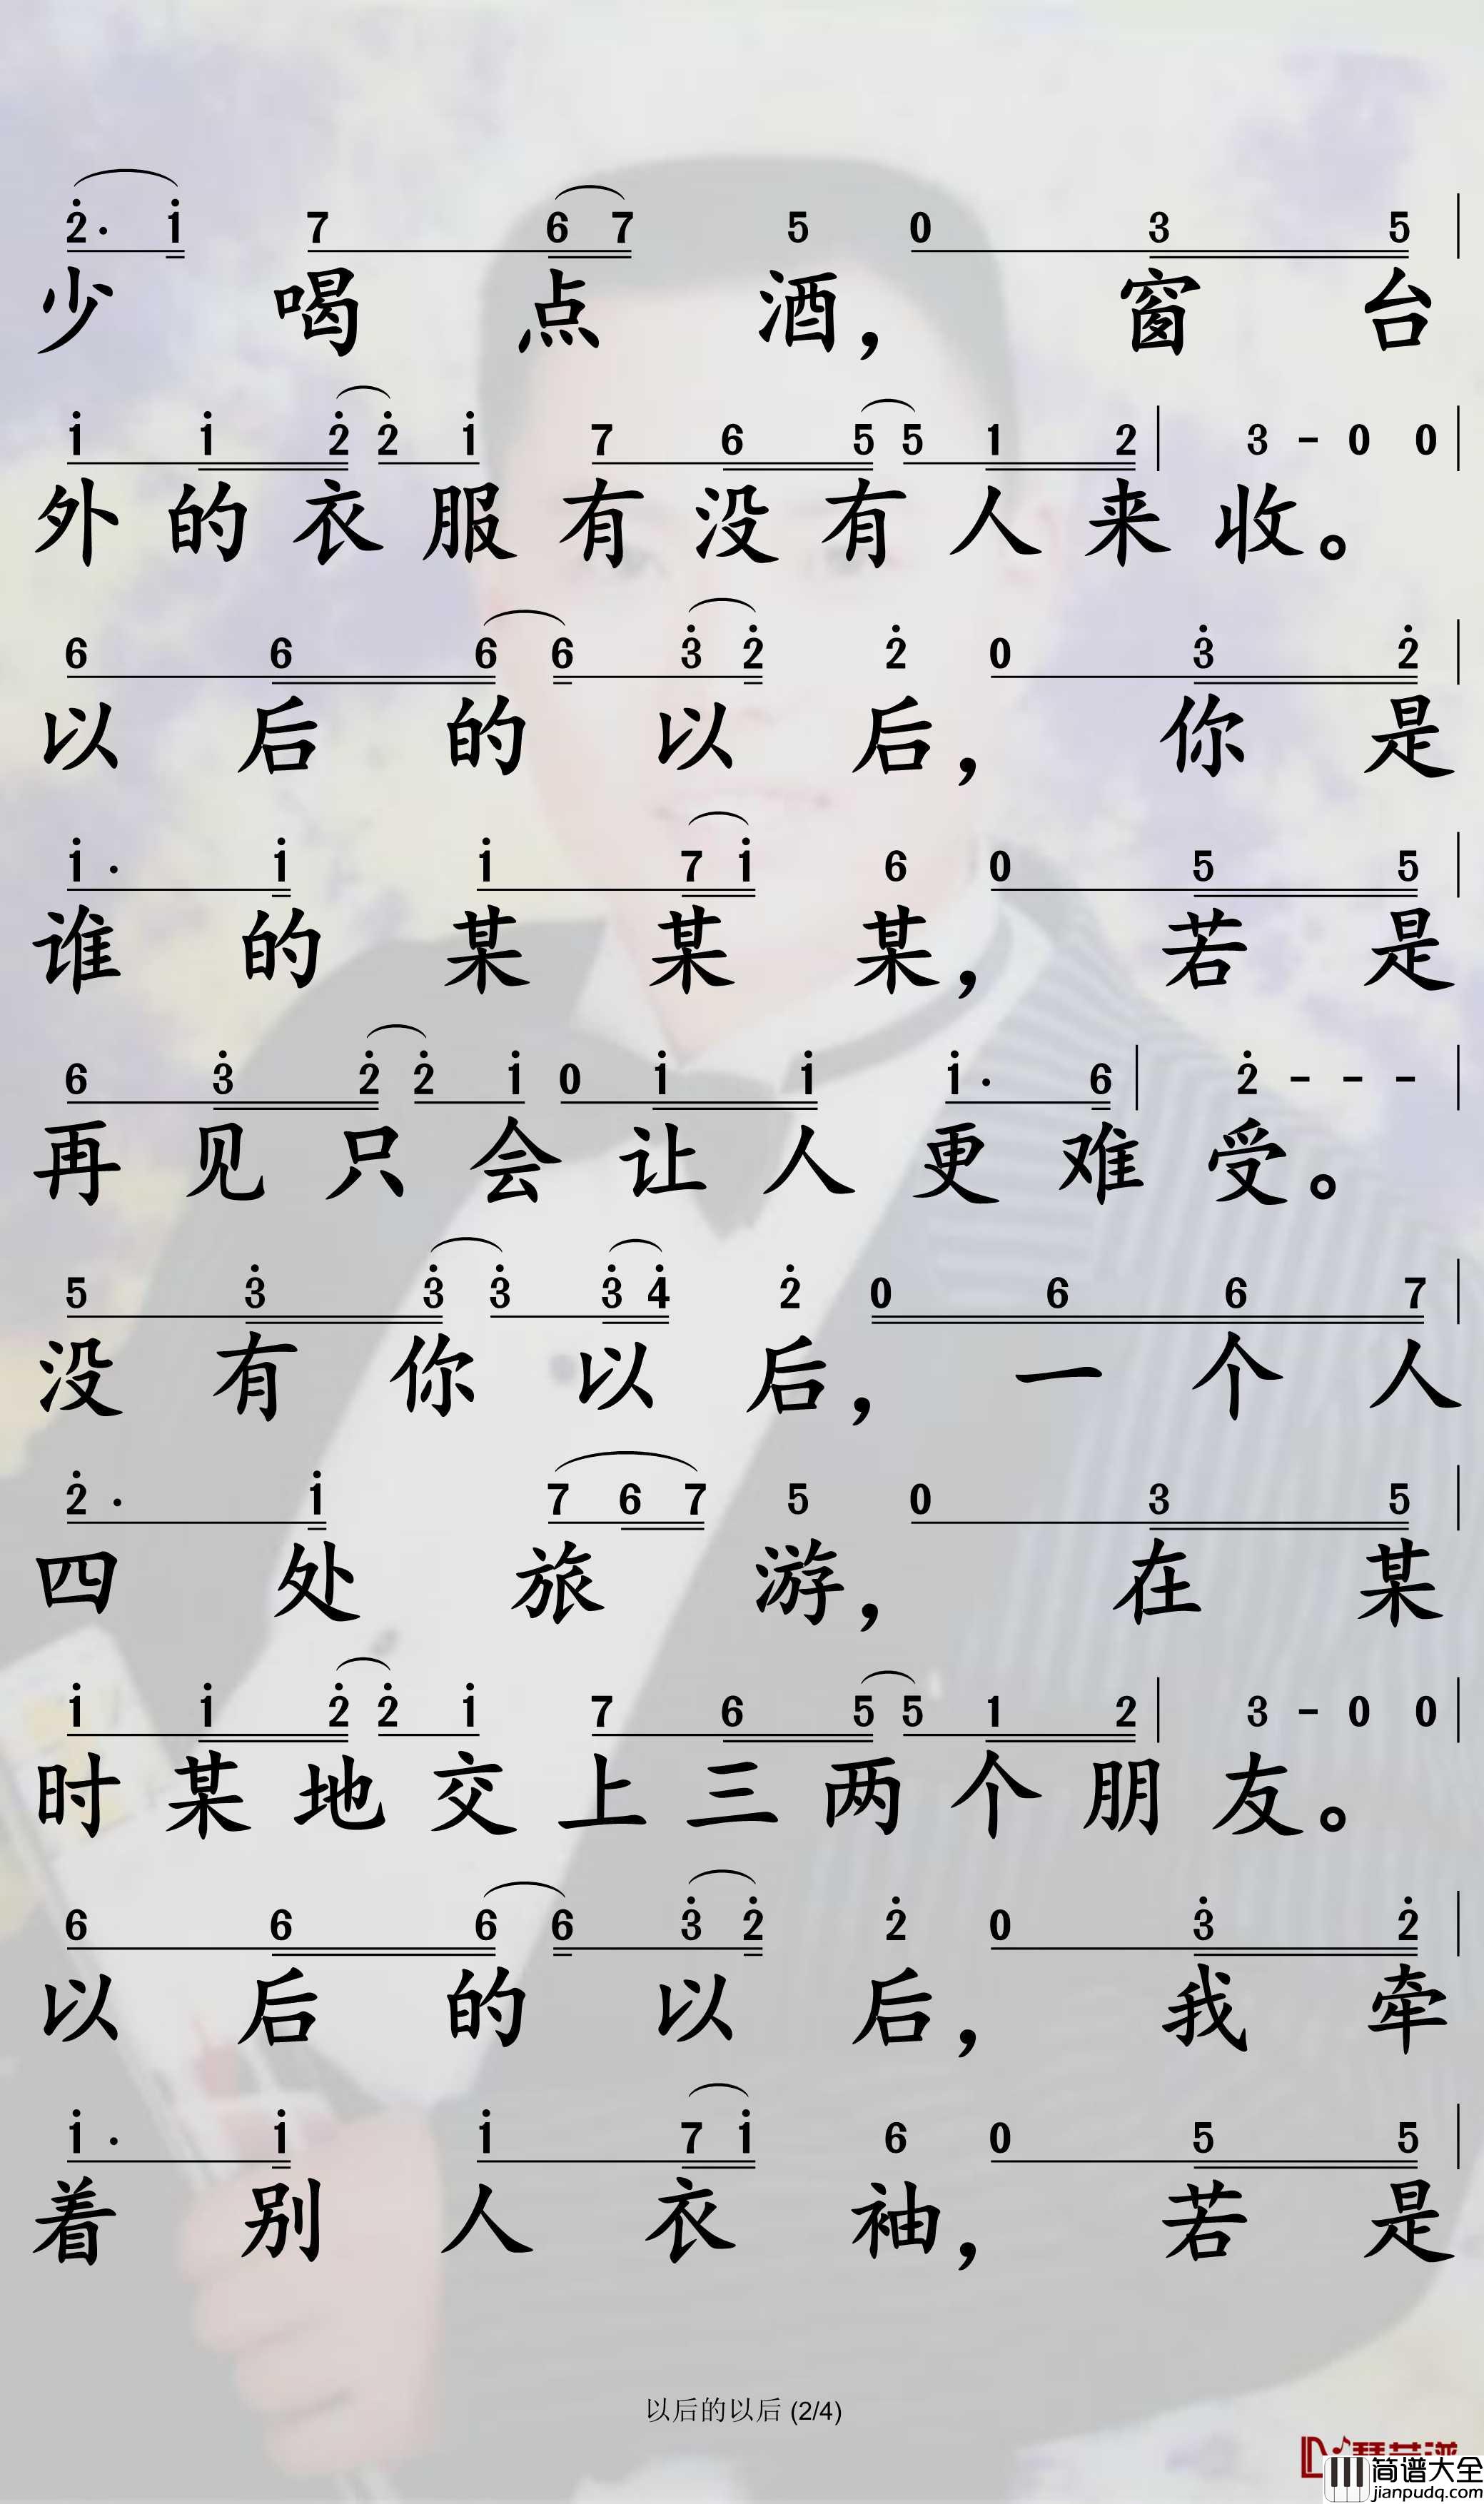 2̇· i̇ 7 6 7 5 0 3 5 |
少喝点酒，窗台
i̇ i̇ 2̇ 2̇ i̇ 7 6 5 5 1 2 | 3 - 0 0 |
外的衣服有没有人来收。
6 6 6 6 3̇ 2̇ 2̇ 0 3̇ 2̇ |
以后的以后，你是
i̇· i̇ i̇ 7 i̇ 6 0 5 5 |
谁的某某某，若是
6 3̇ 2̇ 2̇ i̇ 0 i̇ i̇ i̇· 6 | 2̇ - - - |
再见只会让人更难受。
5 3̇ 3̇ 3̇ 3̇ 4̇ 2̇ 0 6 6 7 |
没有你以后，一个人
2̇· i̇ 7 6 7 5 0 3 5 |
四处旅游，在某
i̇ i̇ 2̇ 2̇ i̇ 7 6 5 5 1 2 | 3 - 0 0 |
时某地交上三两个朋友。
6 6 6 6 3̇ 2̇ 2̇ 0 3̇ 2̇ |
以后的以后，我牵
i̇· i̇ i̇ 7 i̇ 6 0 5 5 |
着别人衣袖，若是
以后的以后 (2/4)
简谱大全
jianpudq.com